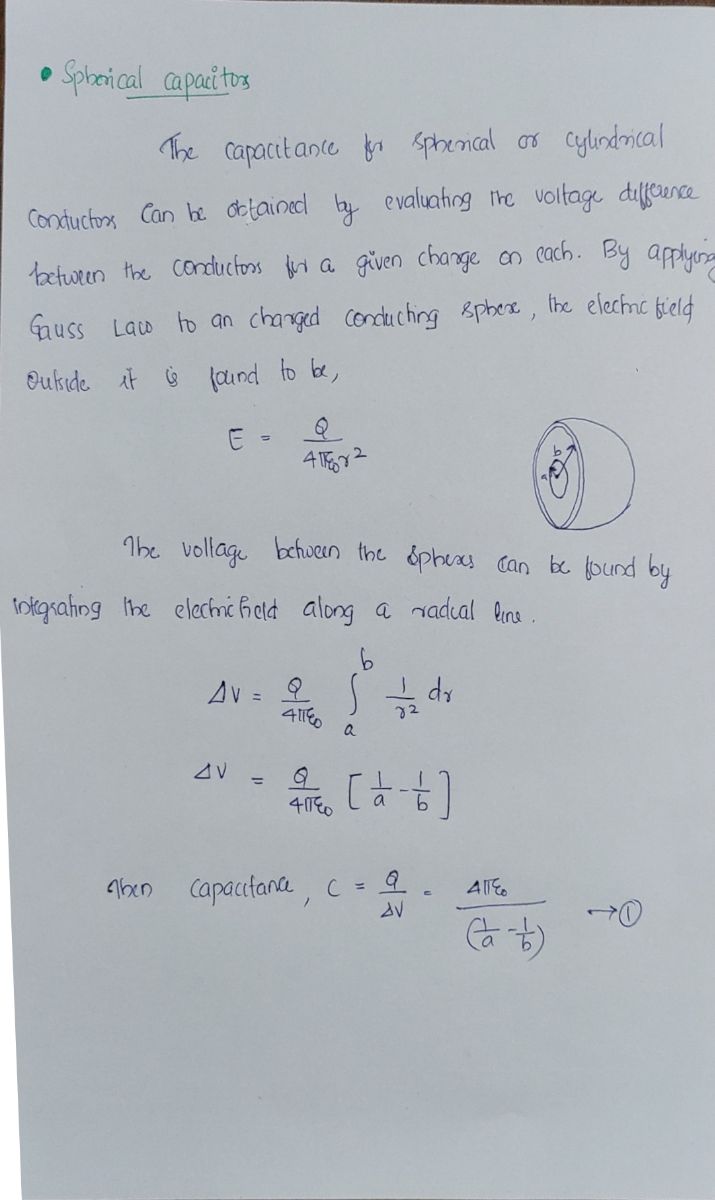 • Spherical capacitor
The capacitance for spherical or cylindrical
conductors can be obtained by evaluating the voltage difference
between the conductors for a given charge on each. By applying
Gauss Law to an charged conducting sphere, the electric field
outside it is found to be,
E = Q / 4πε₀r²
b
a
The voltage between the spheres can be found by
integrating the electric field along a radial line.
ΔV = Q/4πε₀ ∫ₐᵇ 1/r² dr
ΔV = Q/4πε₀ [1/a - 1/b]
Then capacitance, C = Q/ΔV = 4πε₀ / (1/a - 1/b) → ①